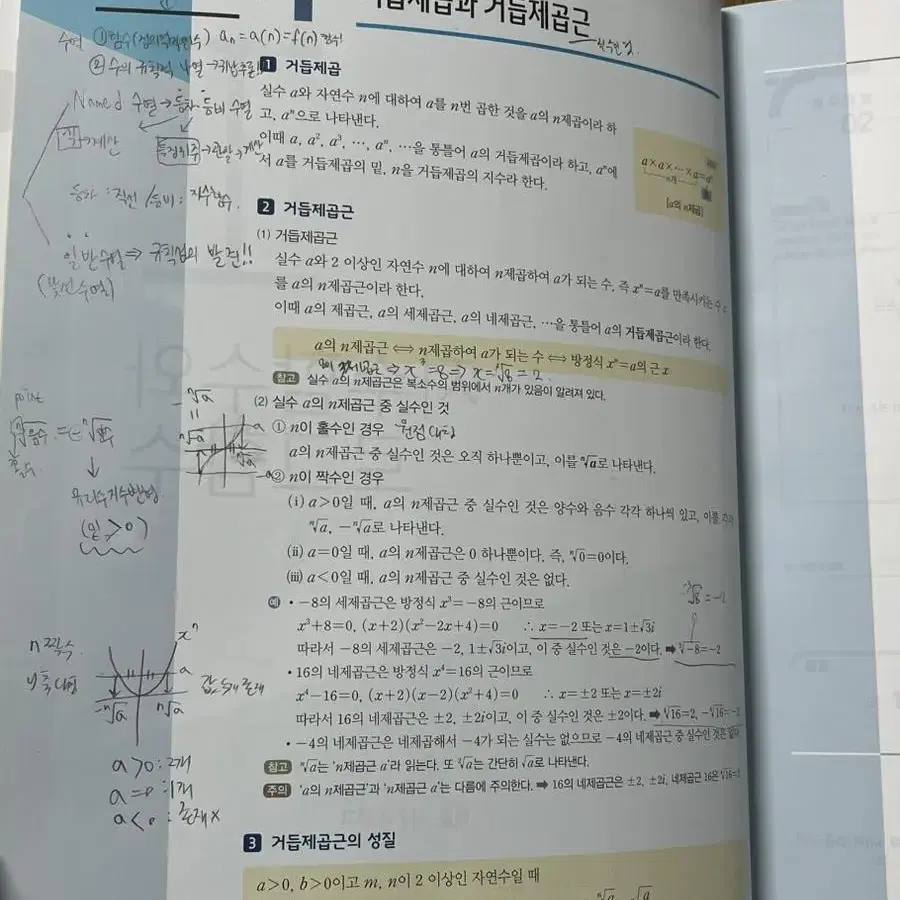 거듭제곱과 거듭제곱근
실수인 것
수열 ① 함수 ( ) aₙ=a(n)=f(n) 함수!
② 수의 규칙적 나열→귀납추론!!
Named 수열→등차·등비 수열
등차 : 직선 / 등비 : 지수함수.
일반수열⇒ 규칙성의 발견!!
1 거듭제곱
실수 a와 자연수 n에 대하여 a를 n번 곱한 것을 a의 n제곱이라 하
고, aⁿ으로 나타낸다.
이때 a, a², a³, …, aⁿ, …을 통틀어 a의 거듭제곱이라 하고, aⁿ에
서 a를 거듭제곱의 밑, n을 거듭제곱의 지수라 한다.
a×a×⋯×a=aⁿ
n개
[a의 n제곱]
2 거듭제곱근
(1) 거듭제곱근
실수 a와 2 이상인 자연수 n에 대하여 n제곱하여 a가 되는 수, 즉 xⁿ=a를 만족시키는 수 x
를 a의 n제곱근이라 한다.
이때 a의 제곱근, a의 세제곱근, a의 네제곱근, …을 통틀어 a의 거듭제곱근이라 한다.
a의 n제곱근 ⟺ n제곱하여 a가 되는 수 ⟺ 방정식 xⁿ=a의 근 x
⇒ x³=8⇒ x=∛8=2
참고 실수 a의 n제곱근은 복소수의 범위에서 n개가 있음이 알려져 있다.
(2) 실수 a의 n제곱근 중 실수인 것
① n이 홀수인 경우 원점대칭
a의 n제곱근 중 실수인 것은 오직 하나뿐이고, 이를 ⁿ√a로 나타낸다.
② n이 짝수인 경우
(i) a>0일 때, a의 n제곱근 중 실수인 것은 양수와 음수 각각 하나씩 있고, 이를 각각
ⁿ√a, −ⁿ√a로 나타낸다.
(ii) a=0일 때, a의 n제곱근은 0 하나뿐이다. 즉, ⁿ√0=0이다.
(iii) a<0일 때, a의 n제곱근 중 실수인 것은 없다.
point
−ⁿ√a
=
ⁿ√a
a
ⁿ√a
−a
홀수
유리수지수반영
(밑≥0)
예 • −8의 세제곱근은 방정식 x³=−8의 근이므로
x³+8=0, (x+2)(x²−2x+4)=0 ∴ x=−2 또는 x=1±√3i
따라서 −8의 세제곱근은 −2, 1±√3i이고, 이 중 실수인 것은 −2이다. ➡ ∛−8=−2
−∛8=−2
• 16의 네제곱근은 방정식 x⁴=16의 근이므로
x⁴−16=0, (x+2)(x−2)(x²+4)=0 ∴ x=±2 또는 x=±2i
따라서 16의 네제곱근은 ±2, ±2i이고, 이 중 실수인 것은 ±2이다. ➡ ∜16=2, −∜16=−2
• −4의 네제곱근은 네제곱해서 −4가 되는 실수는 없으므로 −4의 네제곱근 중 실수인 것은 없다
참고 ⁿ√a는 'n제곱근 a'라 읽는다. 또 ²√a는 간단히 √a로 나타낸다.
주의 'a의 n제곱근'과 'n제곱근 a'는 다름에 주의한다. ➡ 16의 네제곱근은 ±2, ±2i, 네제곱근 16은 ∜16=2
n 짝수.
y축대칭
xⁿ
a
−ⁿ√a
ⁿ√a
a>0 : 2개
a=0 : 1개
a<0 : 존재 X
3 거듭제곱근의 성질
a>0, b>0이고 m, n이 2 이상인 자연수일 때